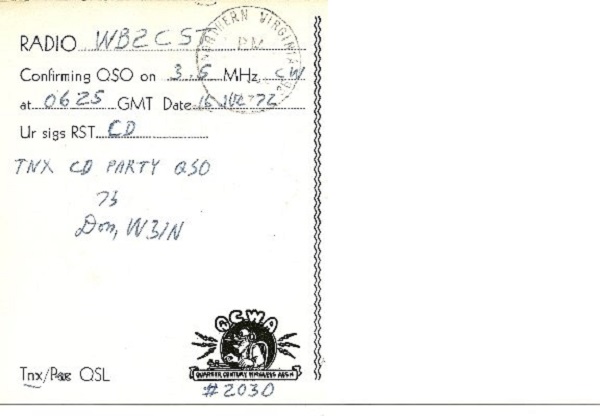 RADIO WB2CST
Confirming QSO on 3.5 MHz CW
at 0625 GMT Date 16 JUL 72
Ur sigs RST CD
TNX CD PARTY QSO
73
Don, W3IN
NORTHERN VIRGINIA
PM
QCWA
QUARTER CENTURY WIRELESS ASS'N
Tnx/Pse QSL
#2030